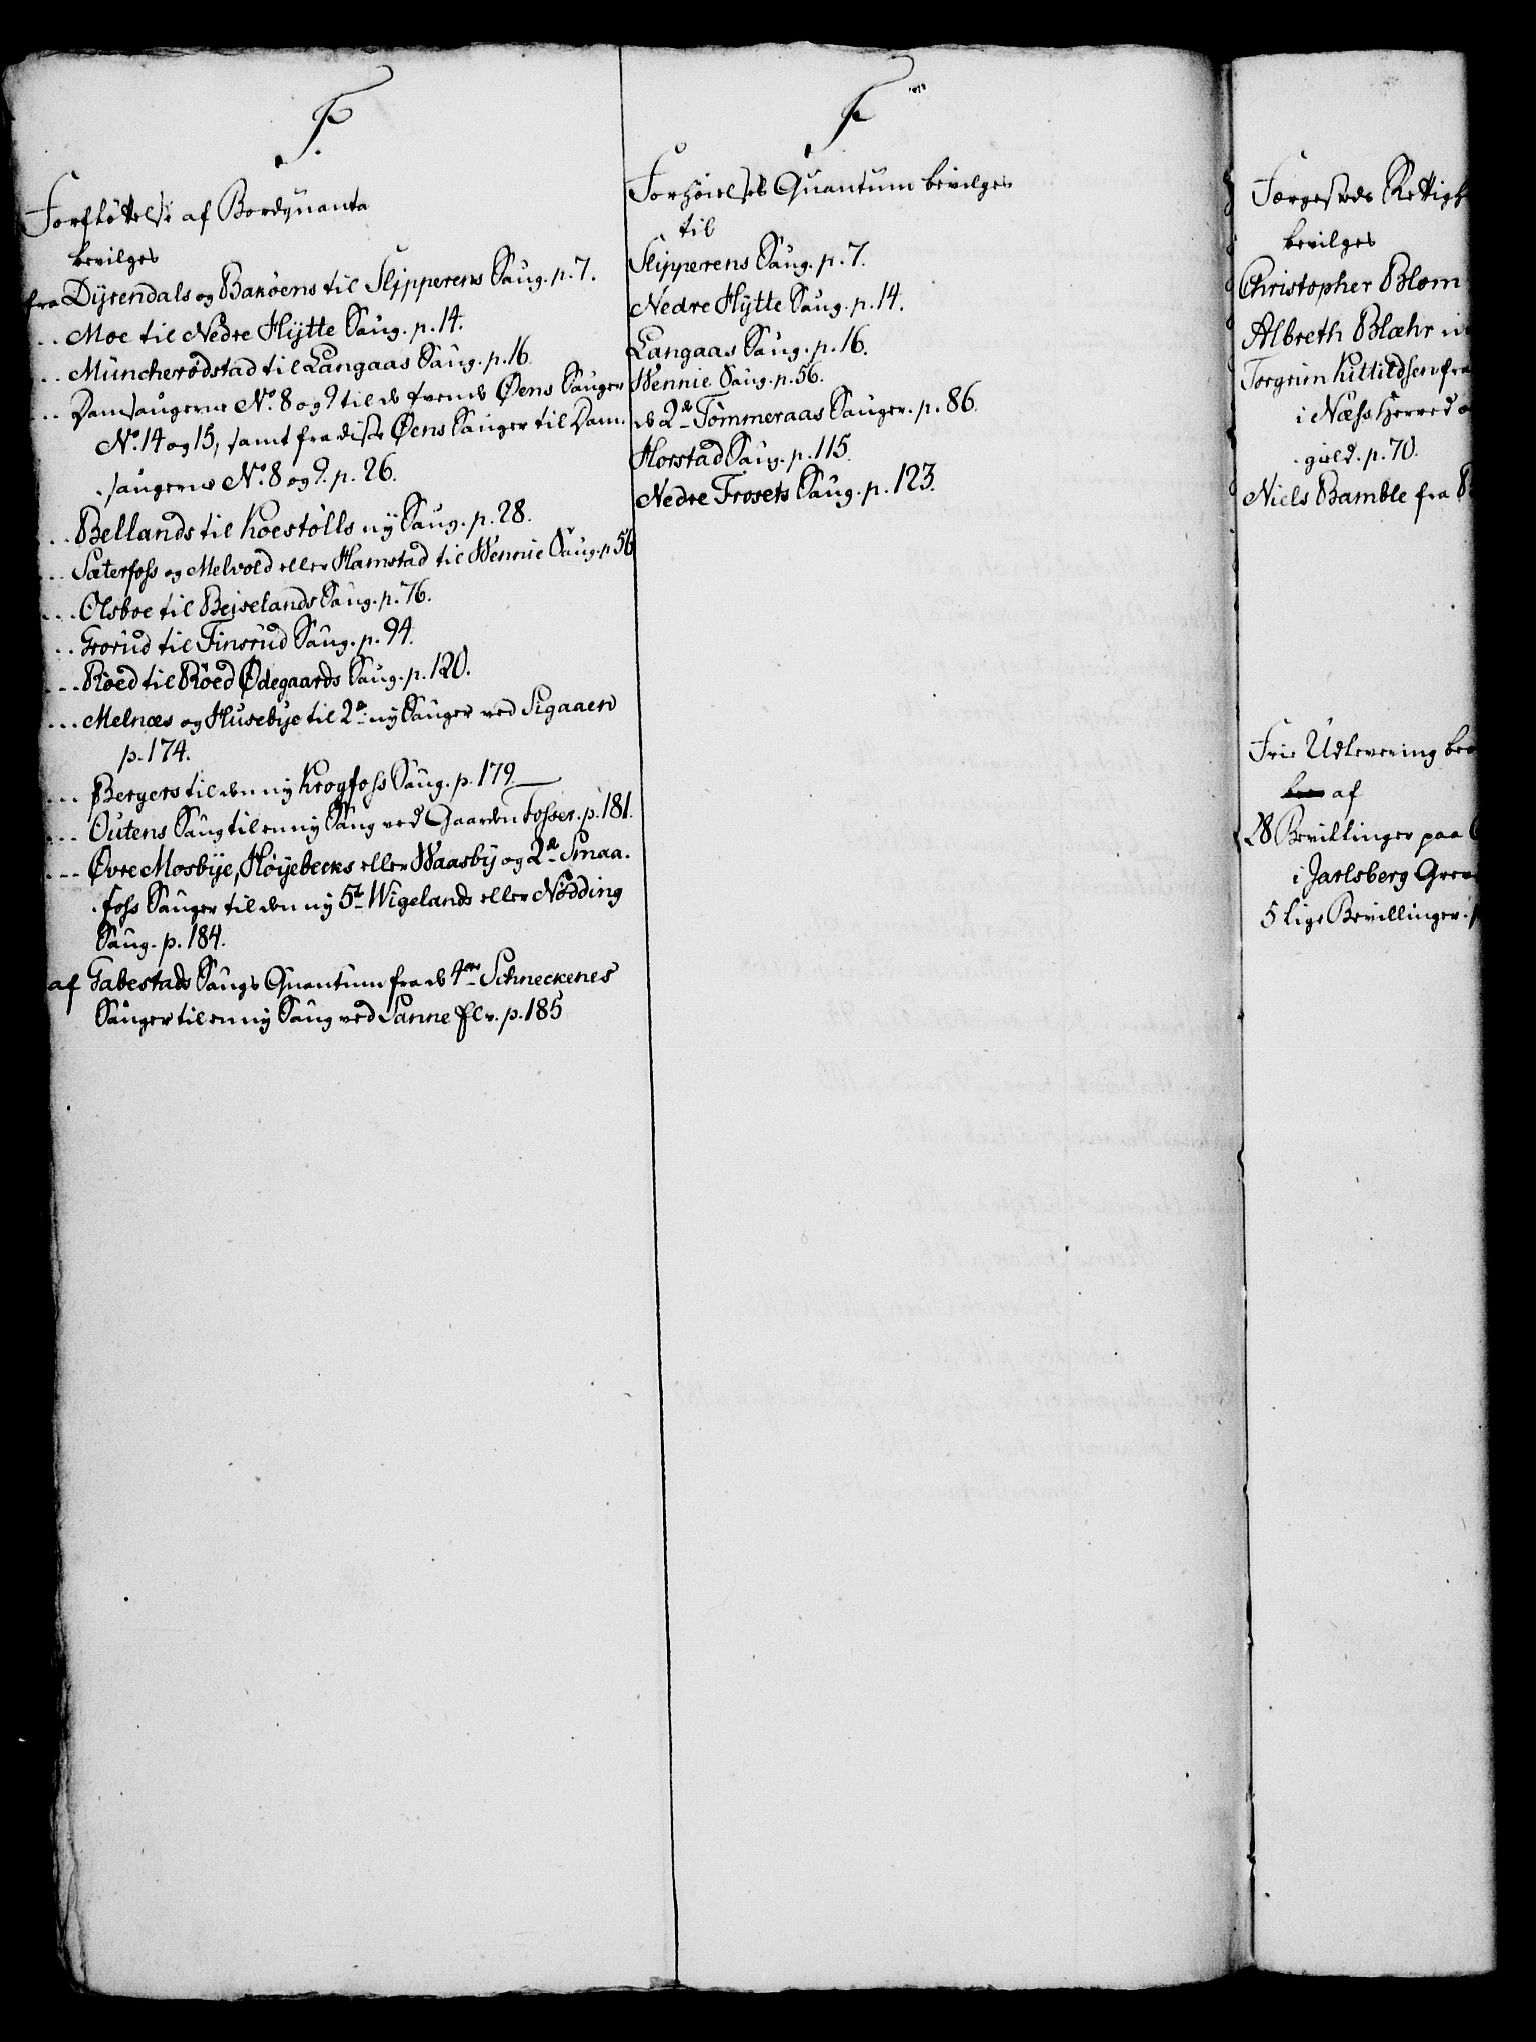 F.
Forflöttelse af Bordquanta
bevilges
fra Dyrendals og Baröens til Slipperens Saug. p. 7.
... Moe til Nedre Hytte Saug. p. 14.
... Müncherödstad til Langaas Saug. p. 16.
... Damsaugerne No. 8 og 9 til de tvende Øens Sauger
No. 14 og 15, samt fra disse Øens Sauger til Dam-
saugerne No. 8 og 9. p. 26.
... Bellands til Koestölls ny Saug. p. 28.
... Sæterfoss og Melvold eller Hamstad til Wennie Saug. p 56
... Olsboe til Beiselands Saug. p. 76.
... Grorud til Finsrud Saug. p. 94.
... Röed til Röed Ødegaards Saug. p. 120.
... Melnæs og Husebye til 2de ny Sauger ved Sigaaen
p. 174.
... Bergers til den ny Krogfoss Saug. p. 179
... Outens Saug til en ny Saug ved Gaarden Fosser. p. 181.
... Øvre Mosbye, Höyebecks eller Waasby og 2de Smaa-
foss Sauger til den ny 5te Wigelands eller Nödding
Saug. p. 184.
af Gabestads Saugs Quantum fra de 4re Schneckenes
Sauger til en ny Saug ved Sanne Elv. p. 185
F
Forhöielses Quantum bevilges
til
Slipperens Saug. p. 7.
Nedre Hytte Saug. p. 14.
Langaas Saug. p. 16.
Wennie Saug. p. 56.
de 2de Tömmeraas Sauger. p. 86.
Horstad Saug. p. 115.
Nedre Frosets Saug. p. 123.
Færgesteds Rettigh
bevilges
Christopher Blom
Albreth Blæhr
Torgrim Kittildsen fra
i Næss Herred
gield. p. 70.
Niels Bamble fra
Frie Udlevering
af
28 Bevillinger paa
i Jarlsberg Grev
5 lige Bevillinger.